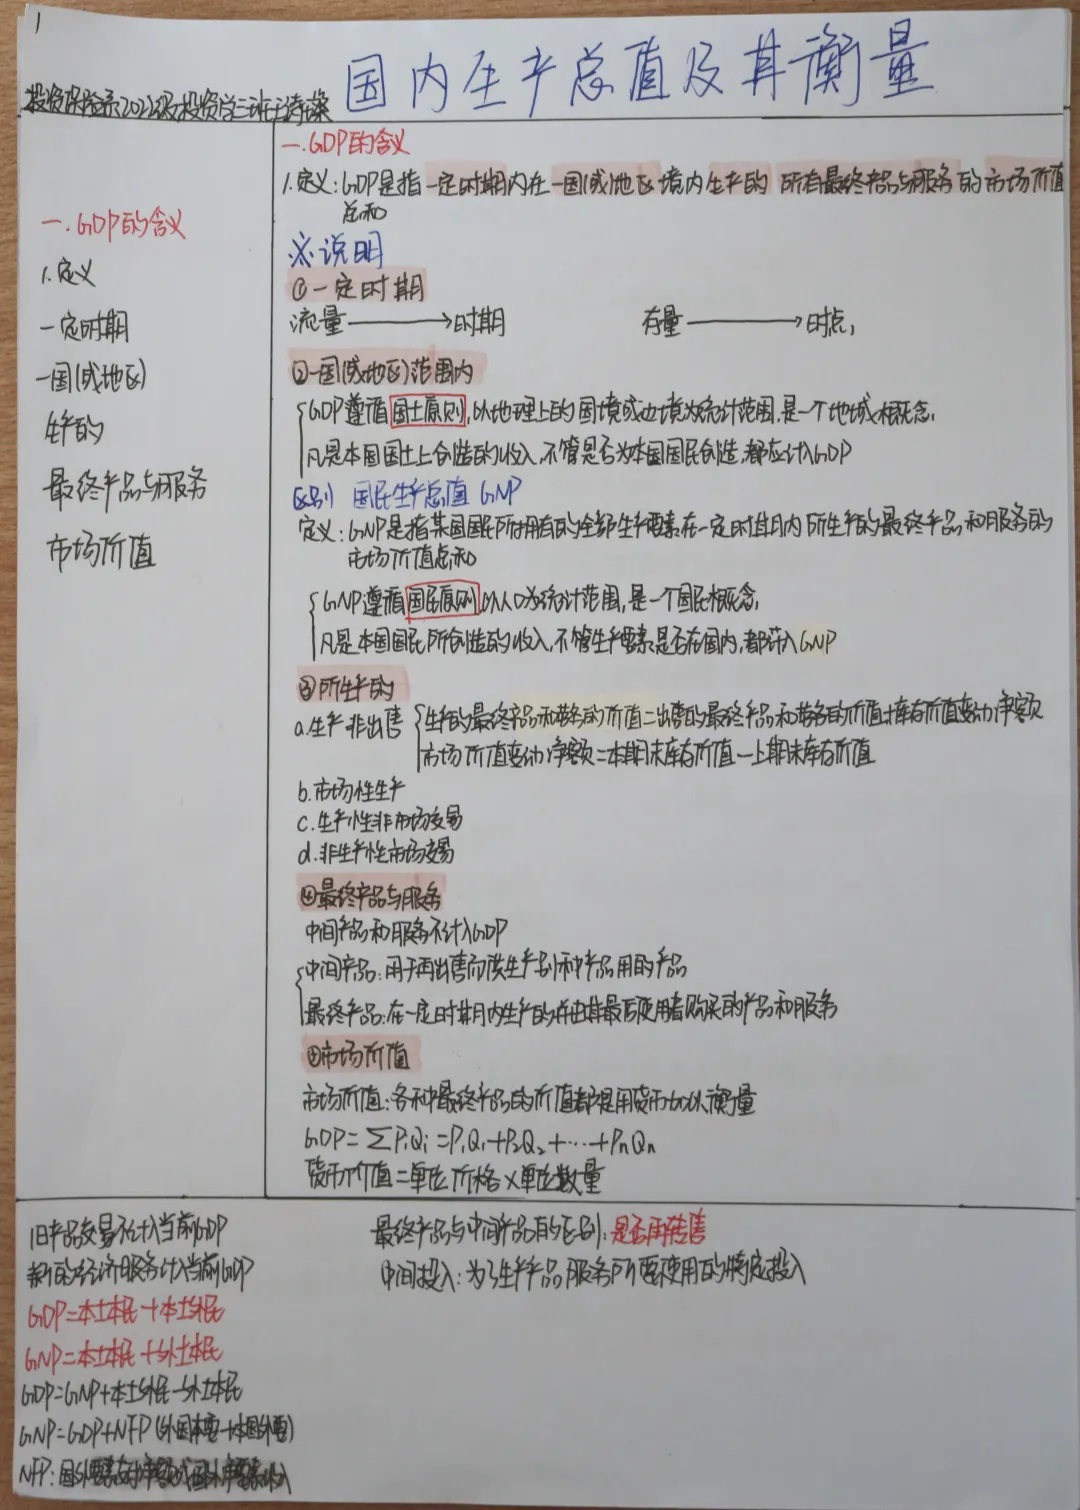 1
国内生产总值及其衡量
投资保险系2021级投资学三班
一.GDP的含义
1.定义
一定时期
一国(或地区)
生产的
最终产品与服务
市场价值
一.GDP的含义
1.定义:GDP是指一定时期内在一国(或)地区境内生产的 所有最终产品与服务的市场价值
总和
※说明
①一定时期
流量→时期 存量→时点,
②一国(或地区)范围内
GDP遵循国土原则,以地理上的国境或边境为统计范围,是一个地域概念,
凡是本国国土上创造的收入,不管是否为本国国民创造,都应计入GDP
区别 国民生产总值 GNP
定义:GNP是指某国国民所拥有的全部生产要素在一定时期内所生产的最终产品和服务的
市场价值总和
GNP遵循国民原则,以人口为统计范围,是一个国民概念,
凡是本国国民所创造的收入,不管生产要素是否在国内,都计入GNP
③所生产的
a.生产非出售 生产的最终产品和劳务的价值=出售的最终产品和劳务的价值+库存价值变动净额
市场价值变动净额=本期期末库存价值-上期期末库存价值
b.市场性生产
c.生产性非市场交易
d.非生产性市场交易
④最终产品与服务
中间产品和服务不计入GDP
中间产品:用于再出售而供生产别种产品用的产品
最终产品:在一定时期内生产的并由其最后使用者购买的产品和服务
市场价值
市场价值:各种最终产品的价值都是用货币加以衡量
GDP=∑PiQi=P₁Q₁+P₂Q₂+……+PnQn
货币价值=单位价格×单位数量
旧产品交易不计入当前GDP
新的经济服务计入当前GDP
GDP=本土本民+本土外民
GNP=本土本民+外土本民
GDP=GNP+本土外民-外土本民
GNP=GDP+NFP(外国本要-本国外要)
NFP:国外要素支付净额或国外净要素收入
最终产品与中间产品的区别:是否再转售
中间投入:为了生产产品服务所要使用的特定投入